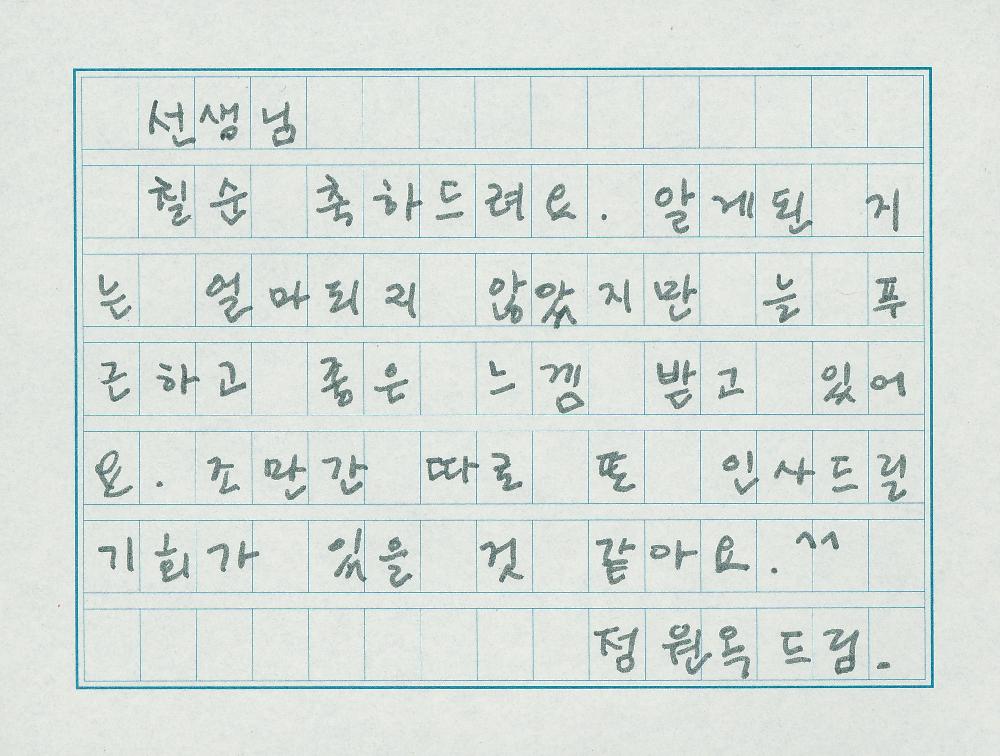 선생님
칠순 축하드려요. 알게된 지
는 얼마되지 않았지만 늘 푸
근하고 좋은 느낌 받고 있어
요. 조만간 따로 또 인사드릴
기회가 있을 것 같아요. ^^
정원옥 드림.